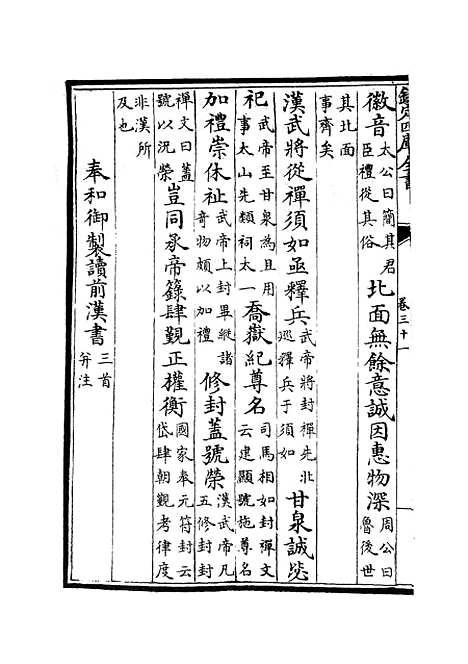 欽定四庫全書
卷三十一
徽音太公曰簡其君臣禮從其俗北面無餘意誠因惠物深周公曰魯後世
其北面事齊矣
漢武將從禪須如亟釋兵武帝將封禪先北巡釋兵于須如甘泉誠毖
祀武帝至甘泉為且用事太山先類祠太一喬嶽紀尊名司馬相如封禪文云建顯號施尊名
加禮崇休祉武帝上封畢縱諸奇物頗以加禮修封蓋號榮漢武帝凡五修封封
禪文曰蓋號以況榮豈同承帝籙肆覲正權衡國家奉元符封云岱肆朝覲考律度
非漢所及也
奉和御製讀前漢書三首并注